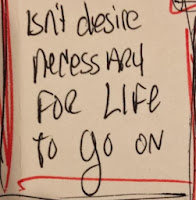 Isn't desire
necessary
FOR LIFE
to go on